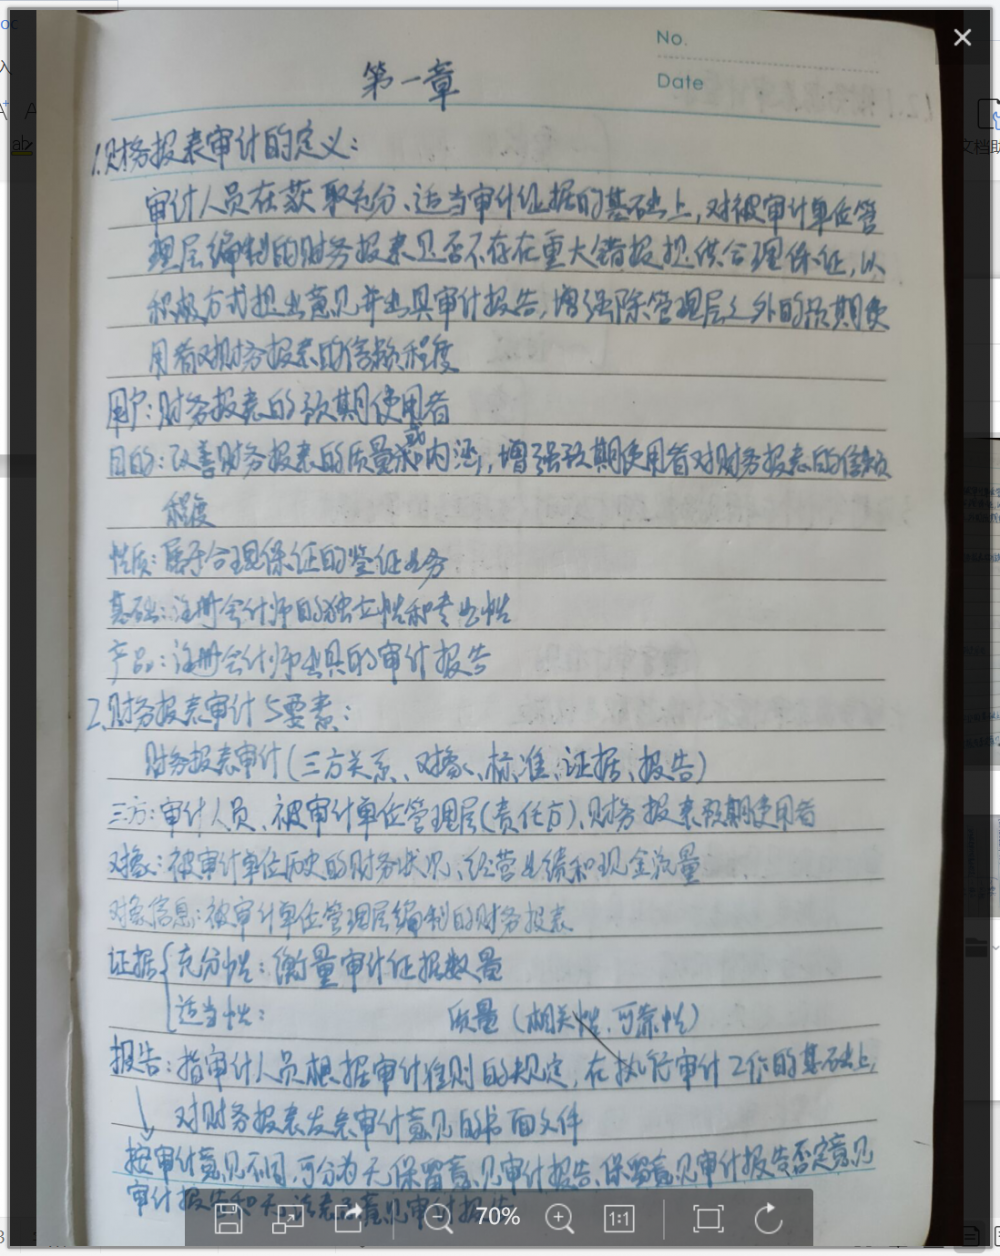 No.
Date
第一章
1.财务报表审计的定义：
审计人员在获取充分、适当审计证据的基础上,对被审计单位管
理层编制的财务报表是否不存在重大错报提供合理保证,以
积极方式提出意见并出具审计报告,增强除管理层之外的预期使
用者对财务报表的信赖程度
用户:财务报表的预期使用者
目的:改善财务报表的质量或内涵,增强预期使用者对财务报表的信赖
程度
性质:属于合理保证的鉴证业务
基础:注册会计师的独立性和专业性
产品:注册会计师出具的审计报告
2.财务报表审计5要素:
财务报表审计(三方关系、对象、标准、证据、报告)
三方:审计人员、被审计单位管理层(责任方)、财务报表预期使用者
对象:被审计单位历史的财务状况、经营业绩和现金流量
对象信息:被审计单位管理层编制的财务报表
证据{充分性:衡量审计证据数量
适当性: 质量(相关性、可靠性)
报告:指审计人员根据审计准则的规定,在执行审计工作的基础上,
对财务报表发表审计意见的书面文件
按审计意见不同,可分为无保留意见审计报告、保留意见审计报告否定意见
审计报告和无法表示意见审计报告
70%
1:1